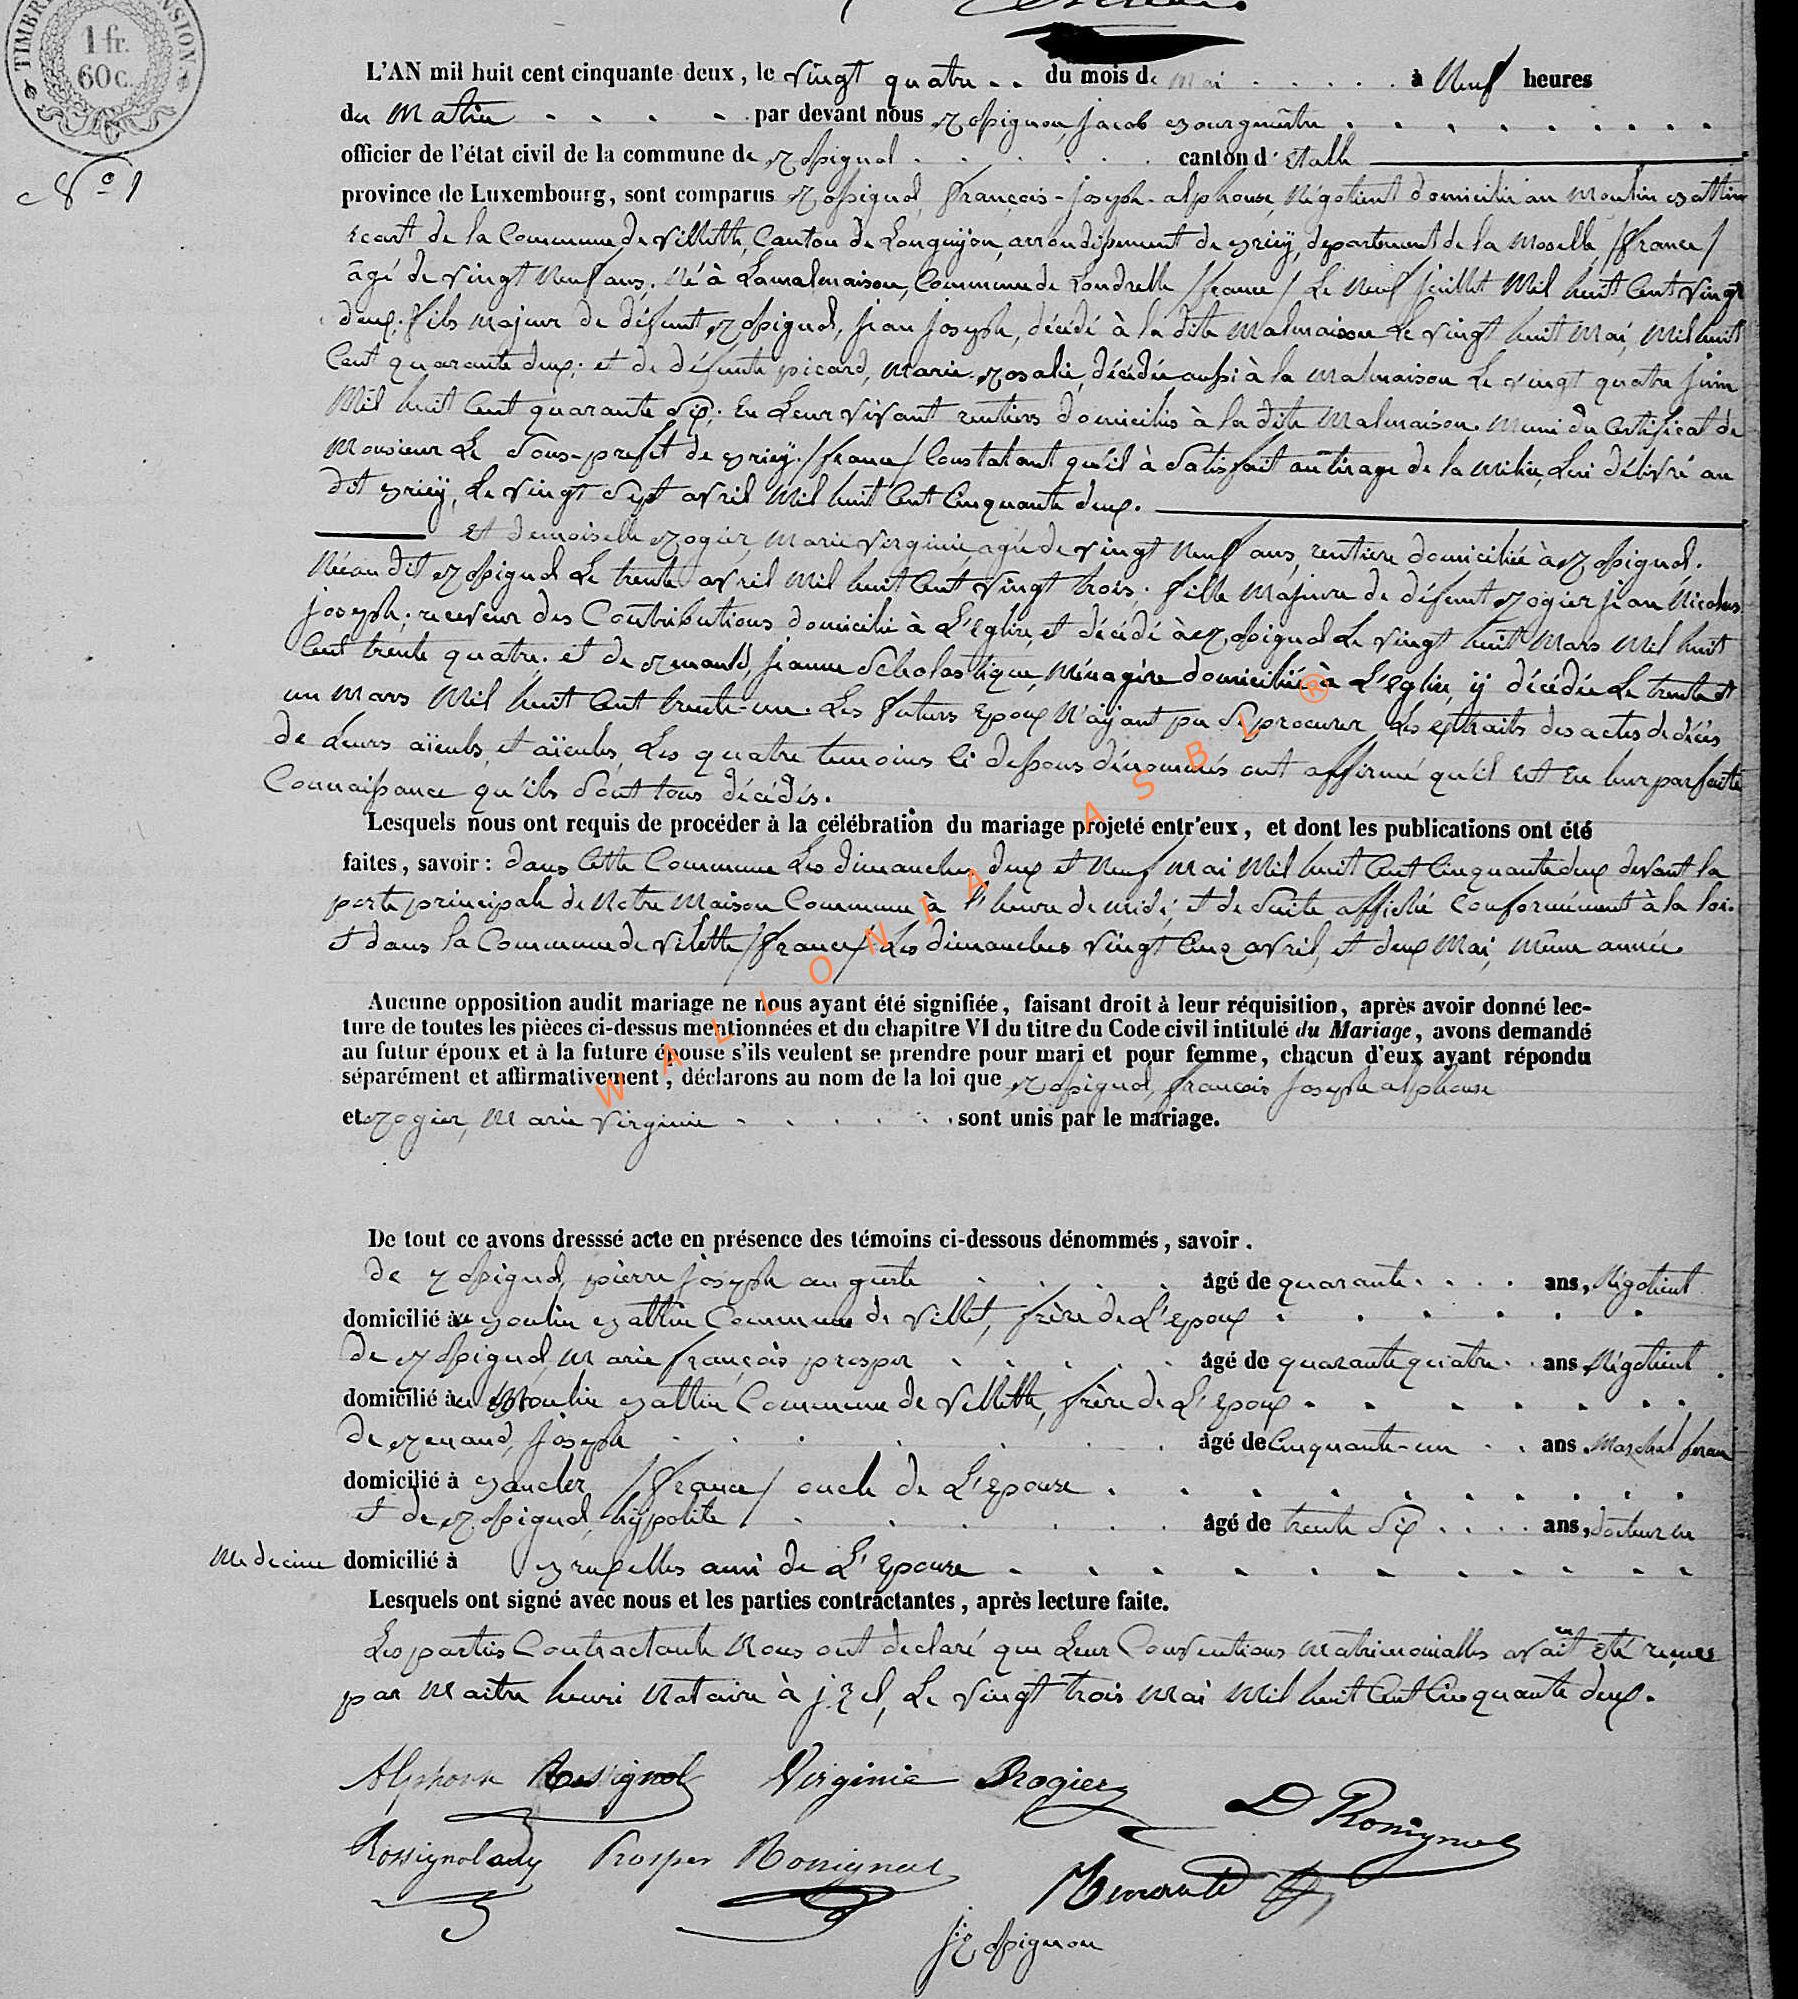 TIMBRE
1 fr.
60 c.
L'AN mil huit cent cinquante deux, le vingt quatre du mois de mai à Neuf heures
du Matin par devant nous Rossignon, Jacob Bourgmestre
officier de l'état civil de la commune de Rossignol canton d'Etalle
N° 1
province de Luxembourg, sont comparus Rossignol, françois-joseph-alphonse, Négotient domicilié au Moulin
écart de la Commune de Villette, Canton de Longuyon, arrondissement de Briey, département de la Moselle, /france/
âgé de vingt Neuf ans. Né à Lamalmaison, Commune de /france/ Le Neuf juillet Mil huit Cent vingt
deux; fils majeur de défunt Rossignol, jean joseph, décédé à la dite Malmaison Le vingt huit Mai, Mil huit
Cent quarante deux; et de défunte picard, Marie Rosalie, décédée aussi à la Malmaison Le vingt quatre juin
Mil huit Cent quarante six; En Leur vivant rentiers domiciliés à la dite Malmaison. Muni du Certificat de
Monsieur Le Sous-prefet de Briey /france/ Constatant qu'il à Satisfait au tirage de la Milice, Lui délivré au
dit Briey, Le vingt Sept avril Mil huit Cent Cinquante deux.
Et demoiselle Rogier, Marie Virginie, agée de vingt Neuf ans, rentière domiciliée à Rossignol.
Née au dit Rossignol Le trente avril Mil huit Cent vingt trois; fille Majeure de défunt Rogier jean Nicolas
joseph, receveur des Contributions domicilié à L'Eglise, et décédé à Rossignol Le vingt huit Mars Mil huit
Cent trente quatre; et de jeanne Scholastique, Ménagère domiciliée à L'Eglise, ÿ décédée Le trente et
un Mars Mil huit Cent trente-une. Les futurs Epoux N'aÿant pu Se procurer Les extraits des actes de décès
de Leurs aïeuls, et aïeules, Les quatre temoins Ci dessous dénommés ont affirmé qu'il Est En leur parfaite
Connaissance qu'ils Sont tous décédés.
Lesquels nous ont requis de procéder à la célébration du mariage projeté entr'eux, et dont les publications ont été
faites, savoir: dans Cette Commune Les dimanches deux et Neuf Mai Mil huit Cent Cinquante deux devant la
porte principale de Notre Maison Commune à l'heure de midi; et de Suite affiché Conformément à la loi.
et dans la Commune de Vilette /france/ Les dimanches vingt Cinq avril, et deux Mai, même année
Aucune opposition audit mariage ne nous ayant été signifiée, faisant droit à leur réquisition, après avoir donné lec-
ture de toutes les pièces ci-dessus mentionnées et du chapitre VI du titre du Code civil intitulé du Mariage, avons demandé
au futur époux et à la future épouse s'ils veulent se prendre pour mari et pour femme, chacun d'eux ayant répondu
séparément et affirmativement, déclarons au nom de la loi que Rossignol, francois Joseph alphonse
et Rogier, Marie Virginie sont unis par le mariage.
De tout ce avons dresssé acte en présence des témoins ci-dessous dénommés, savoir.
de Rossignol, pierre joseph auguste âgé de quarante ans, Négotient
domicilié au Moulin Commune de Villet, frère de L'epoux
de Rossignol, Marie françois prosper âgé de quarante quatre ans Négotient
domicilié au Moulin Commune de Villette, frère de L'epoux
de Joseph âgé de Cinquante-un ans
domicilié à /france/ oncle de L'Epouse
et de Rossignol, hÿpolite âgé de trente Six ans, docteur en
Medecine domicilié à Bruxelles ami de L'Epouse
Lesquels ont signé avec nous et les parties contractantes, après lecture faite.
Les parties Contractante Nous ont declaré que Leur Conventions Matrimonialles avait été reçue
par Maitre henri Notaire à Le vingt trois Mai Mil huit Cent Cinquante deux.
Alphonse Rossignol Virginie Rogier
D Rossignol
Rossignol Prosper Rossignol
J: Rossignon
WALLONIA ASBL ®